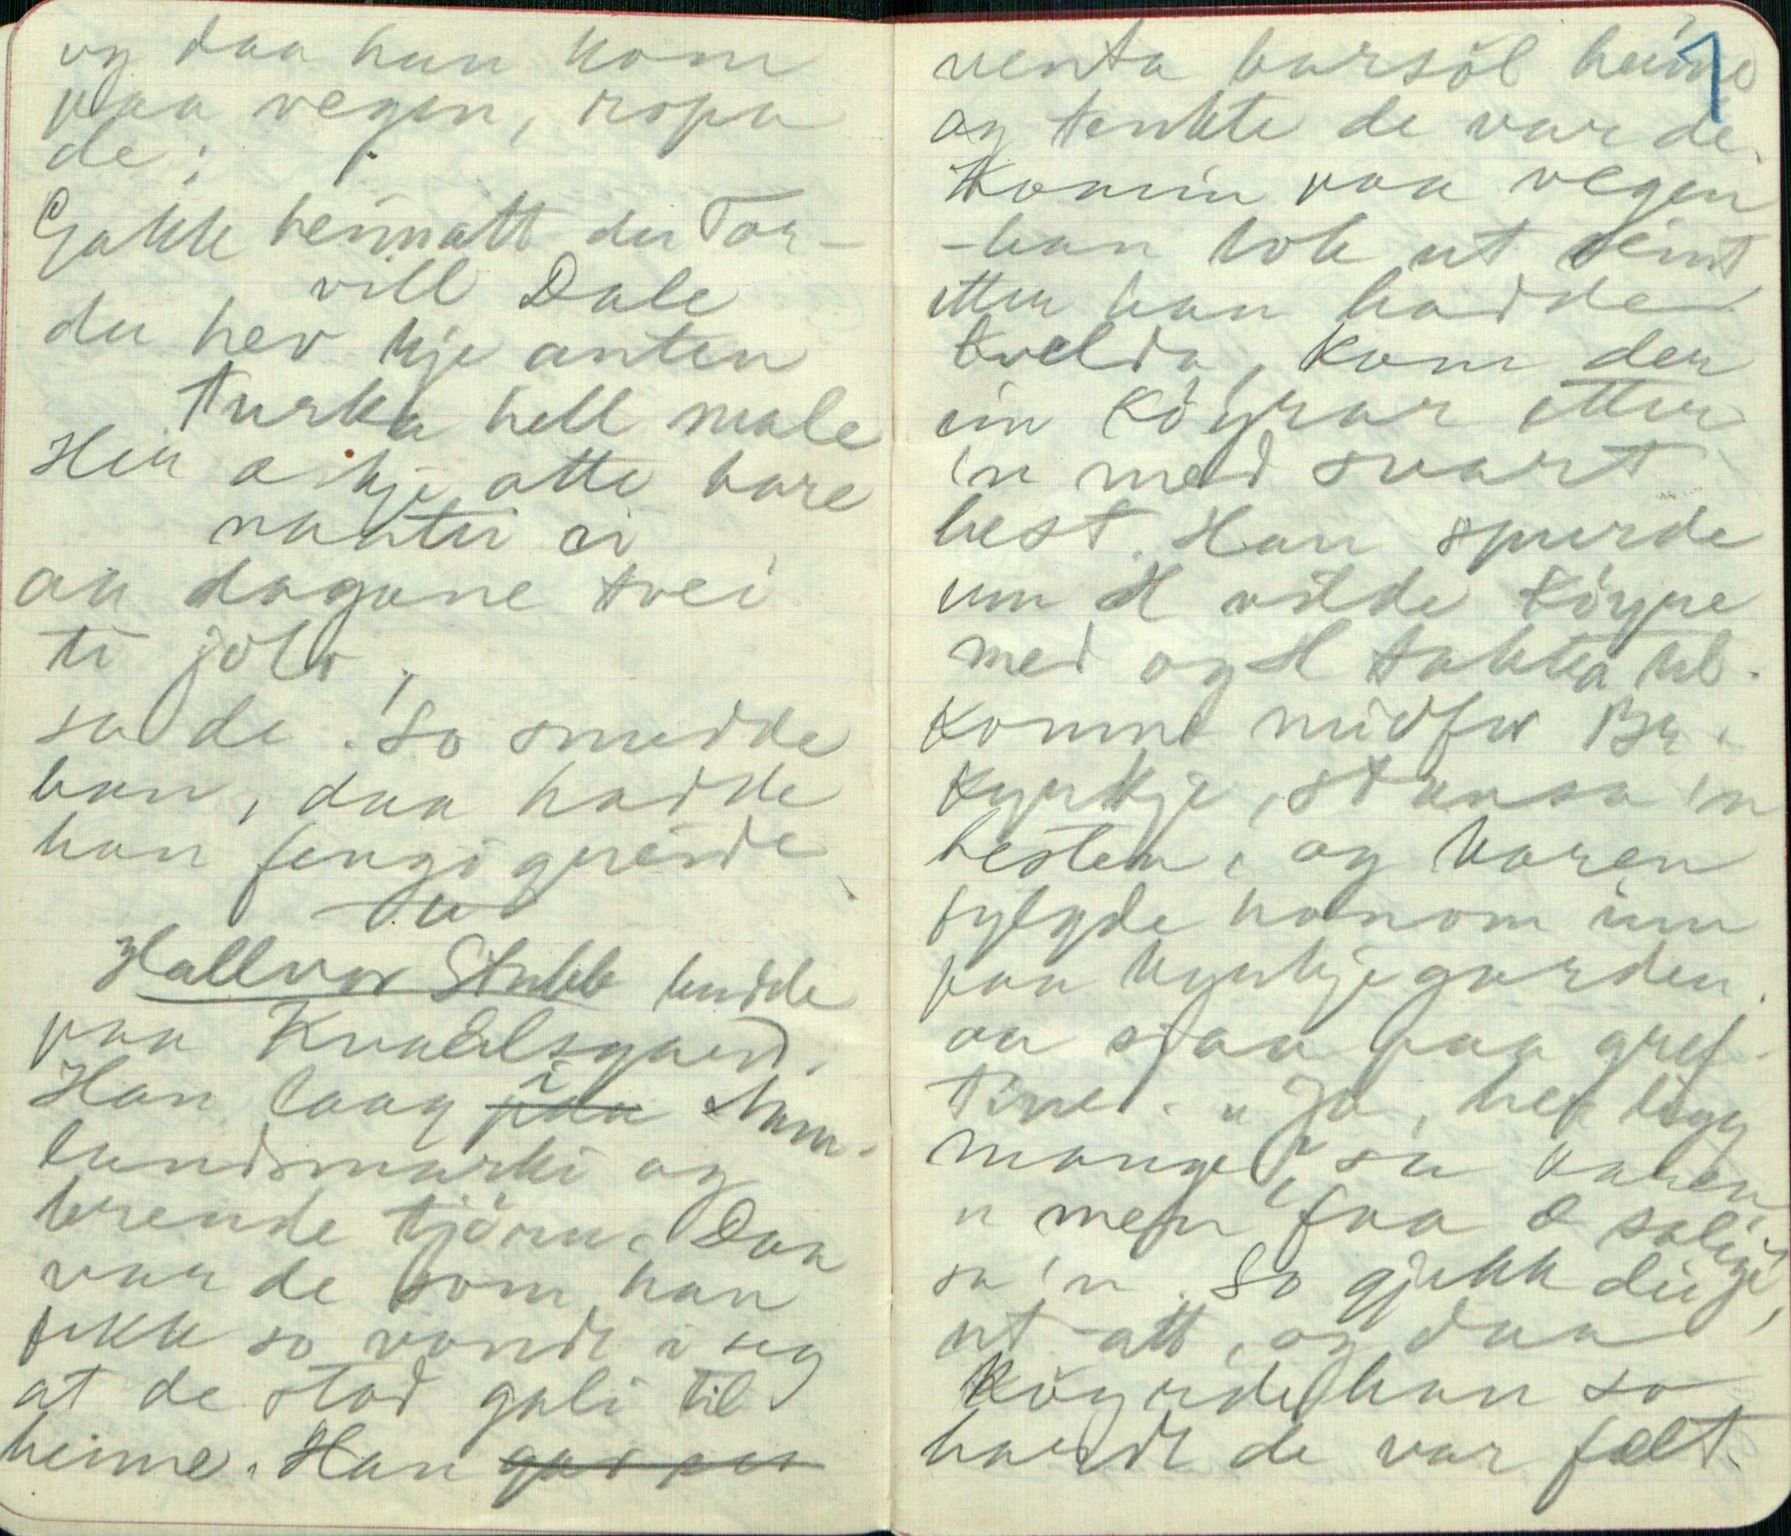 og daa han kom
paa vegen, ropa
de;
Gakk heimatt du Tor-
vill Dale
du hev kje anten
turka hell male
Her a kje atte bare
nahter ei
au dagane tvei
ti jolo,
sa de. So snudde
han, daa hadde
han fengi greide
Hallvor Stubb budde
paa Kvaalsgard.
Han laag i
landsmarki og
brende tjörn. Daa
var de som han
fekk so vondt i seg
at de stod gali til
heime. Han
venta barsöl heime 1
og tenkte de var de.
Komin paa vegen
- han tok ut seint
etter han hadde
kvelda, kom der
ein köyrar etter
'n med svart
hest. Han spurde
um H vilde köyre
med og H takka til.
Komne midfor Bö.
kyrkje, stansa 'n
hesten, og karen
fylgde honom inn
paa kyrkjegarden
aa sjaa paa gref-
tine. "Ja, her ligg
mange", sa karen
" men faa æ salige",
sa 'n. So gjekk dei
ut-att, og daa
köyrde han so
hardt de var fælt.